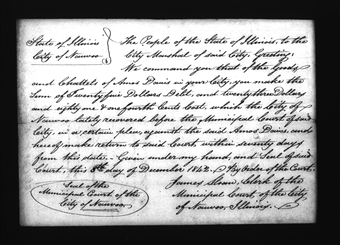 State of Illinois } The People of the State of Illinois, to the
City of Nauvoo } City Marshal of said City, Greeting:
We command you that of the Goods
and Chattels of Amos Davis in your City, you make the
Sum of Twentyfive Dollars Debt, and twenty three Dollars
and eighty one & one fourth Cents Cost, which the City of
Nauvoo lately recovered before the Municipal Court of said
City, in a certain plea, against the said Amos Davis, and
hereof make return to said Court, within seventy days
from this date. Given under my hand, and Seal of said
Court, this 8th day of December 1842. By Order of the Court.
James Sloan, Clerk of the
Municipal Court, of the City
of Nauvoo, Illinois.
Seal of the
Municipal Court of the
City of Nauvoo